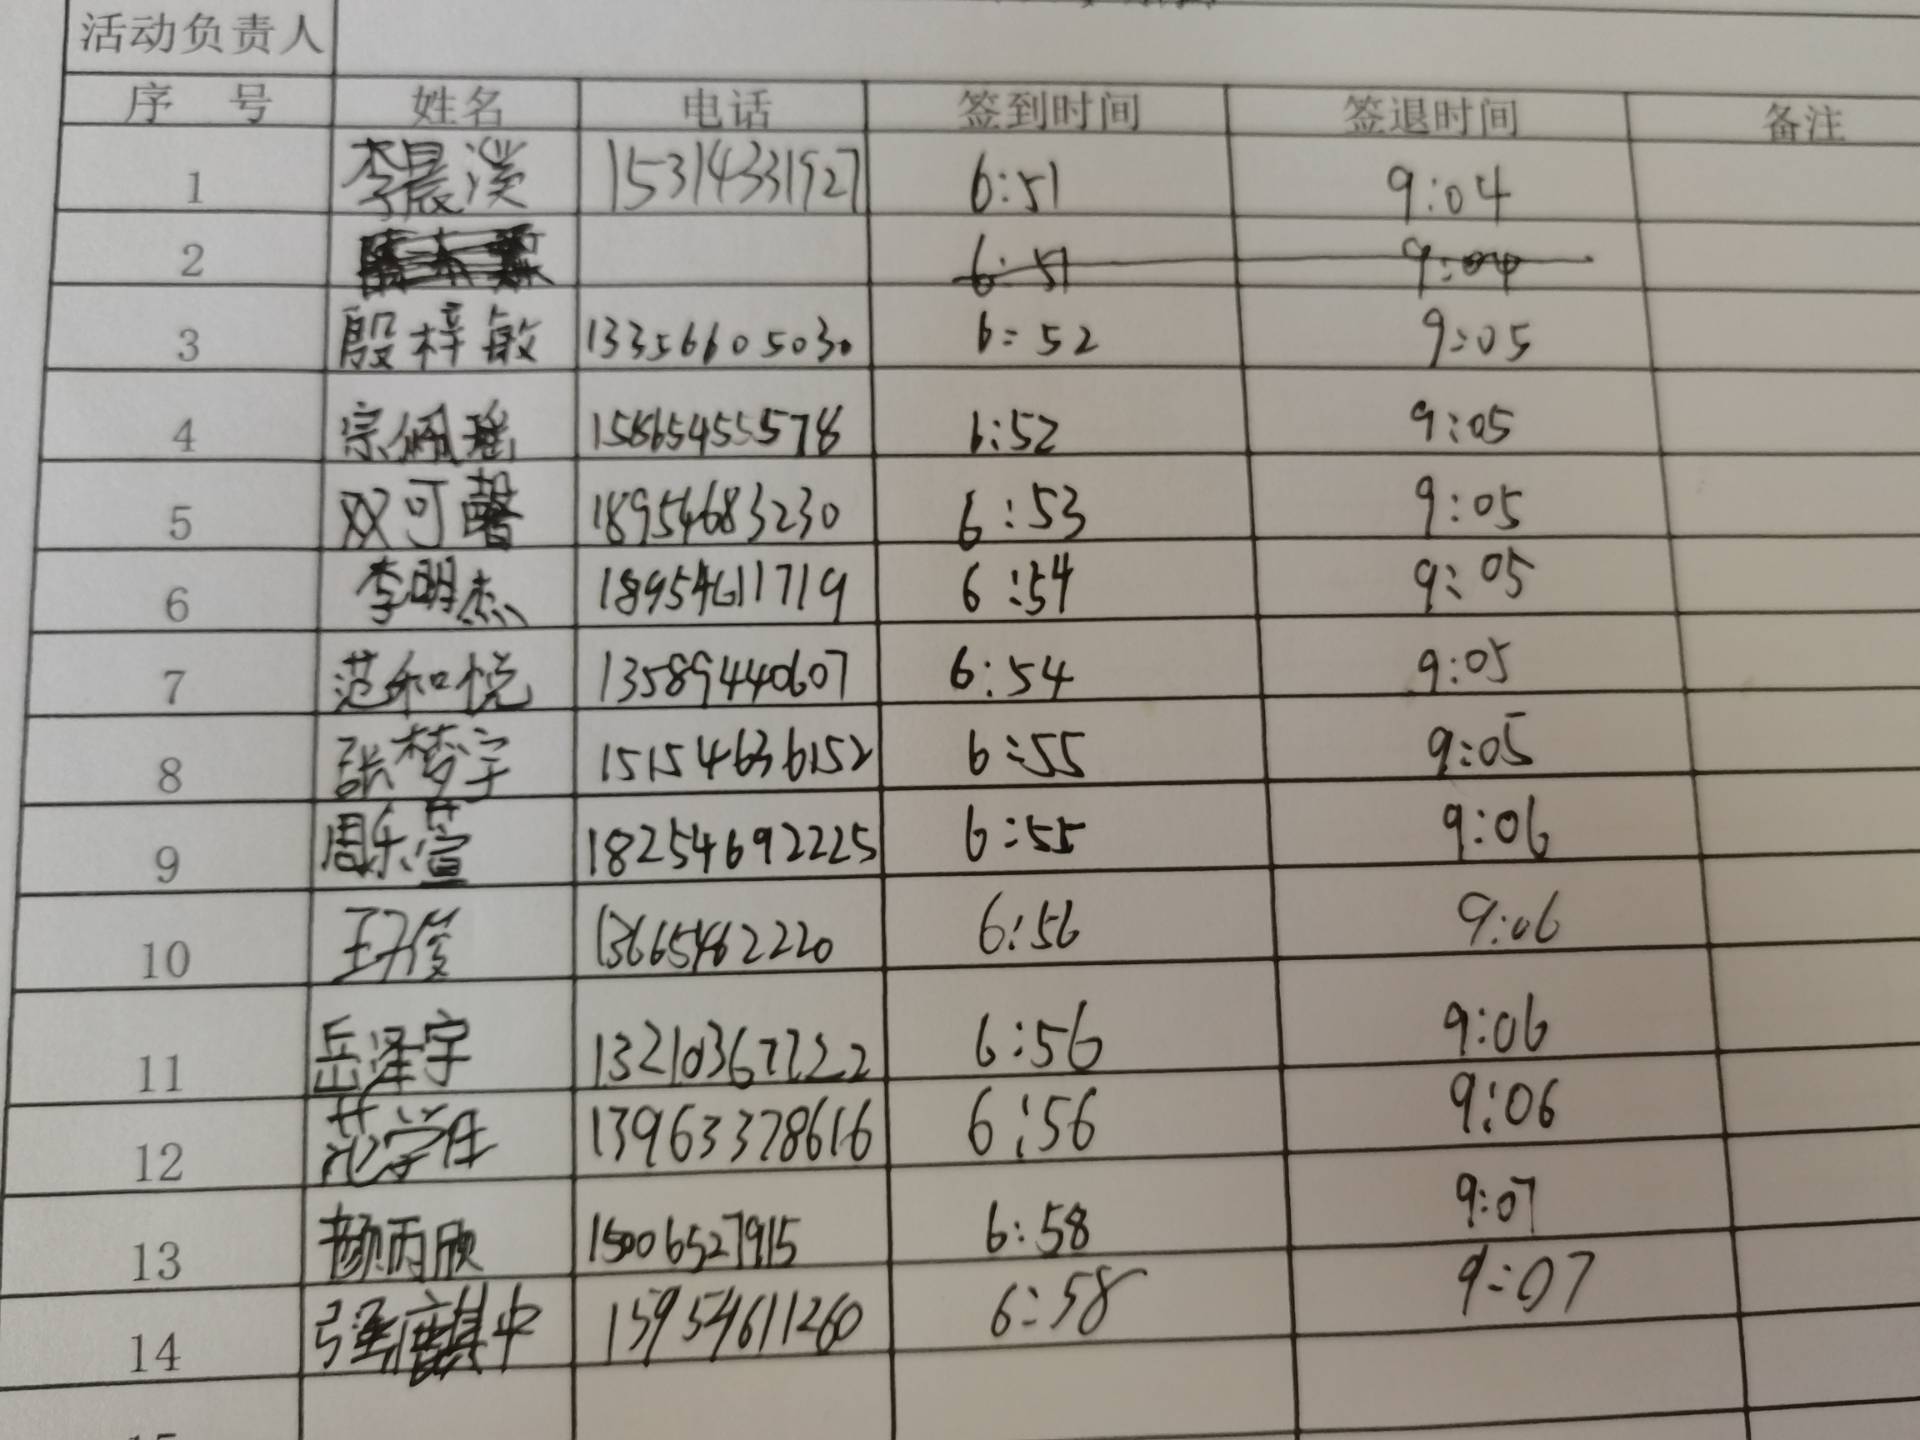 活动负责人
序 号 姓名 电话 签到时间 签退时间 备注
1 李晨溪 15314331927 6:51 9:04
2 6:51 9:04
3 殷梓敏 13356605030 6:52 9:05
4 宗佩瑶 15865455578 6:52 9:05
5 双可馨 18954683230 6:53 9:05
6 李明杰 18954611719 6:54 9:05
7 范和悦 13589440607 6:54 9:05
8 张梦宇 15154636152 6:55 9:05
9 周乐萱 18254692225 6:55 9:06
10 13665462220 6:56 9:06
11 岳泽宇 6:56 9:06
12 13963378616 6:56 9:06
13 颜丙欣 15006527915 6:58 9:07
14 15954611260 6:58 9:07